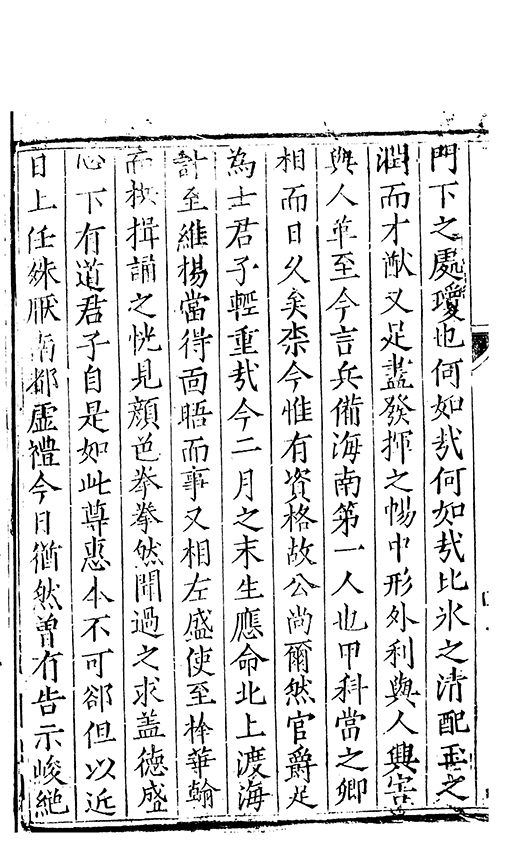 門下之處瓊也何如㢤何如㢤比氷之清配玉之
潤而才猷又足盡發揮之暢中形外利與人興害
與人革至今言兵備海南第一人也甲科當之卿
相而日久矣柰今惟有資格故公尚爾然官爵足
為士君子輕重㢤今二月之末生應命北上渡海
計至維楊當得面晤而事又相左盛使至捧華翰
而揖誦之恍見顔色拳拳然聞過之求盖德盛
心下有道君子自是如此尊惠本不可郤但以近
日上任殊厭南都虛禮今日猶然曽有告示峻絕